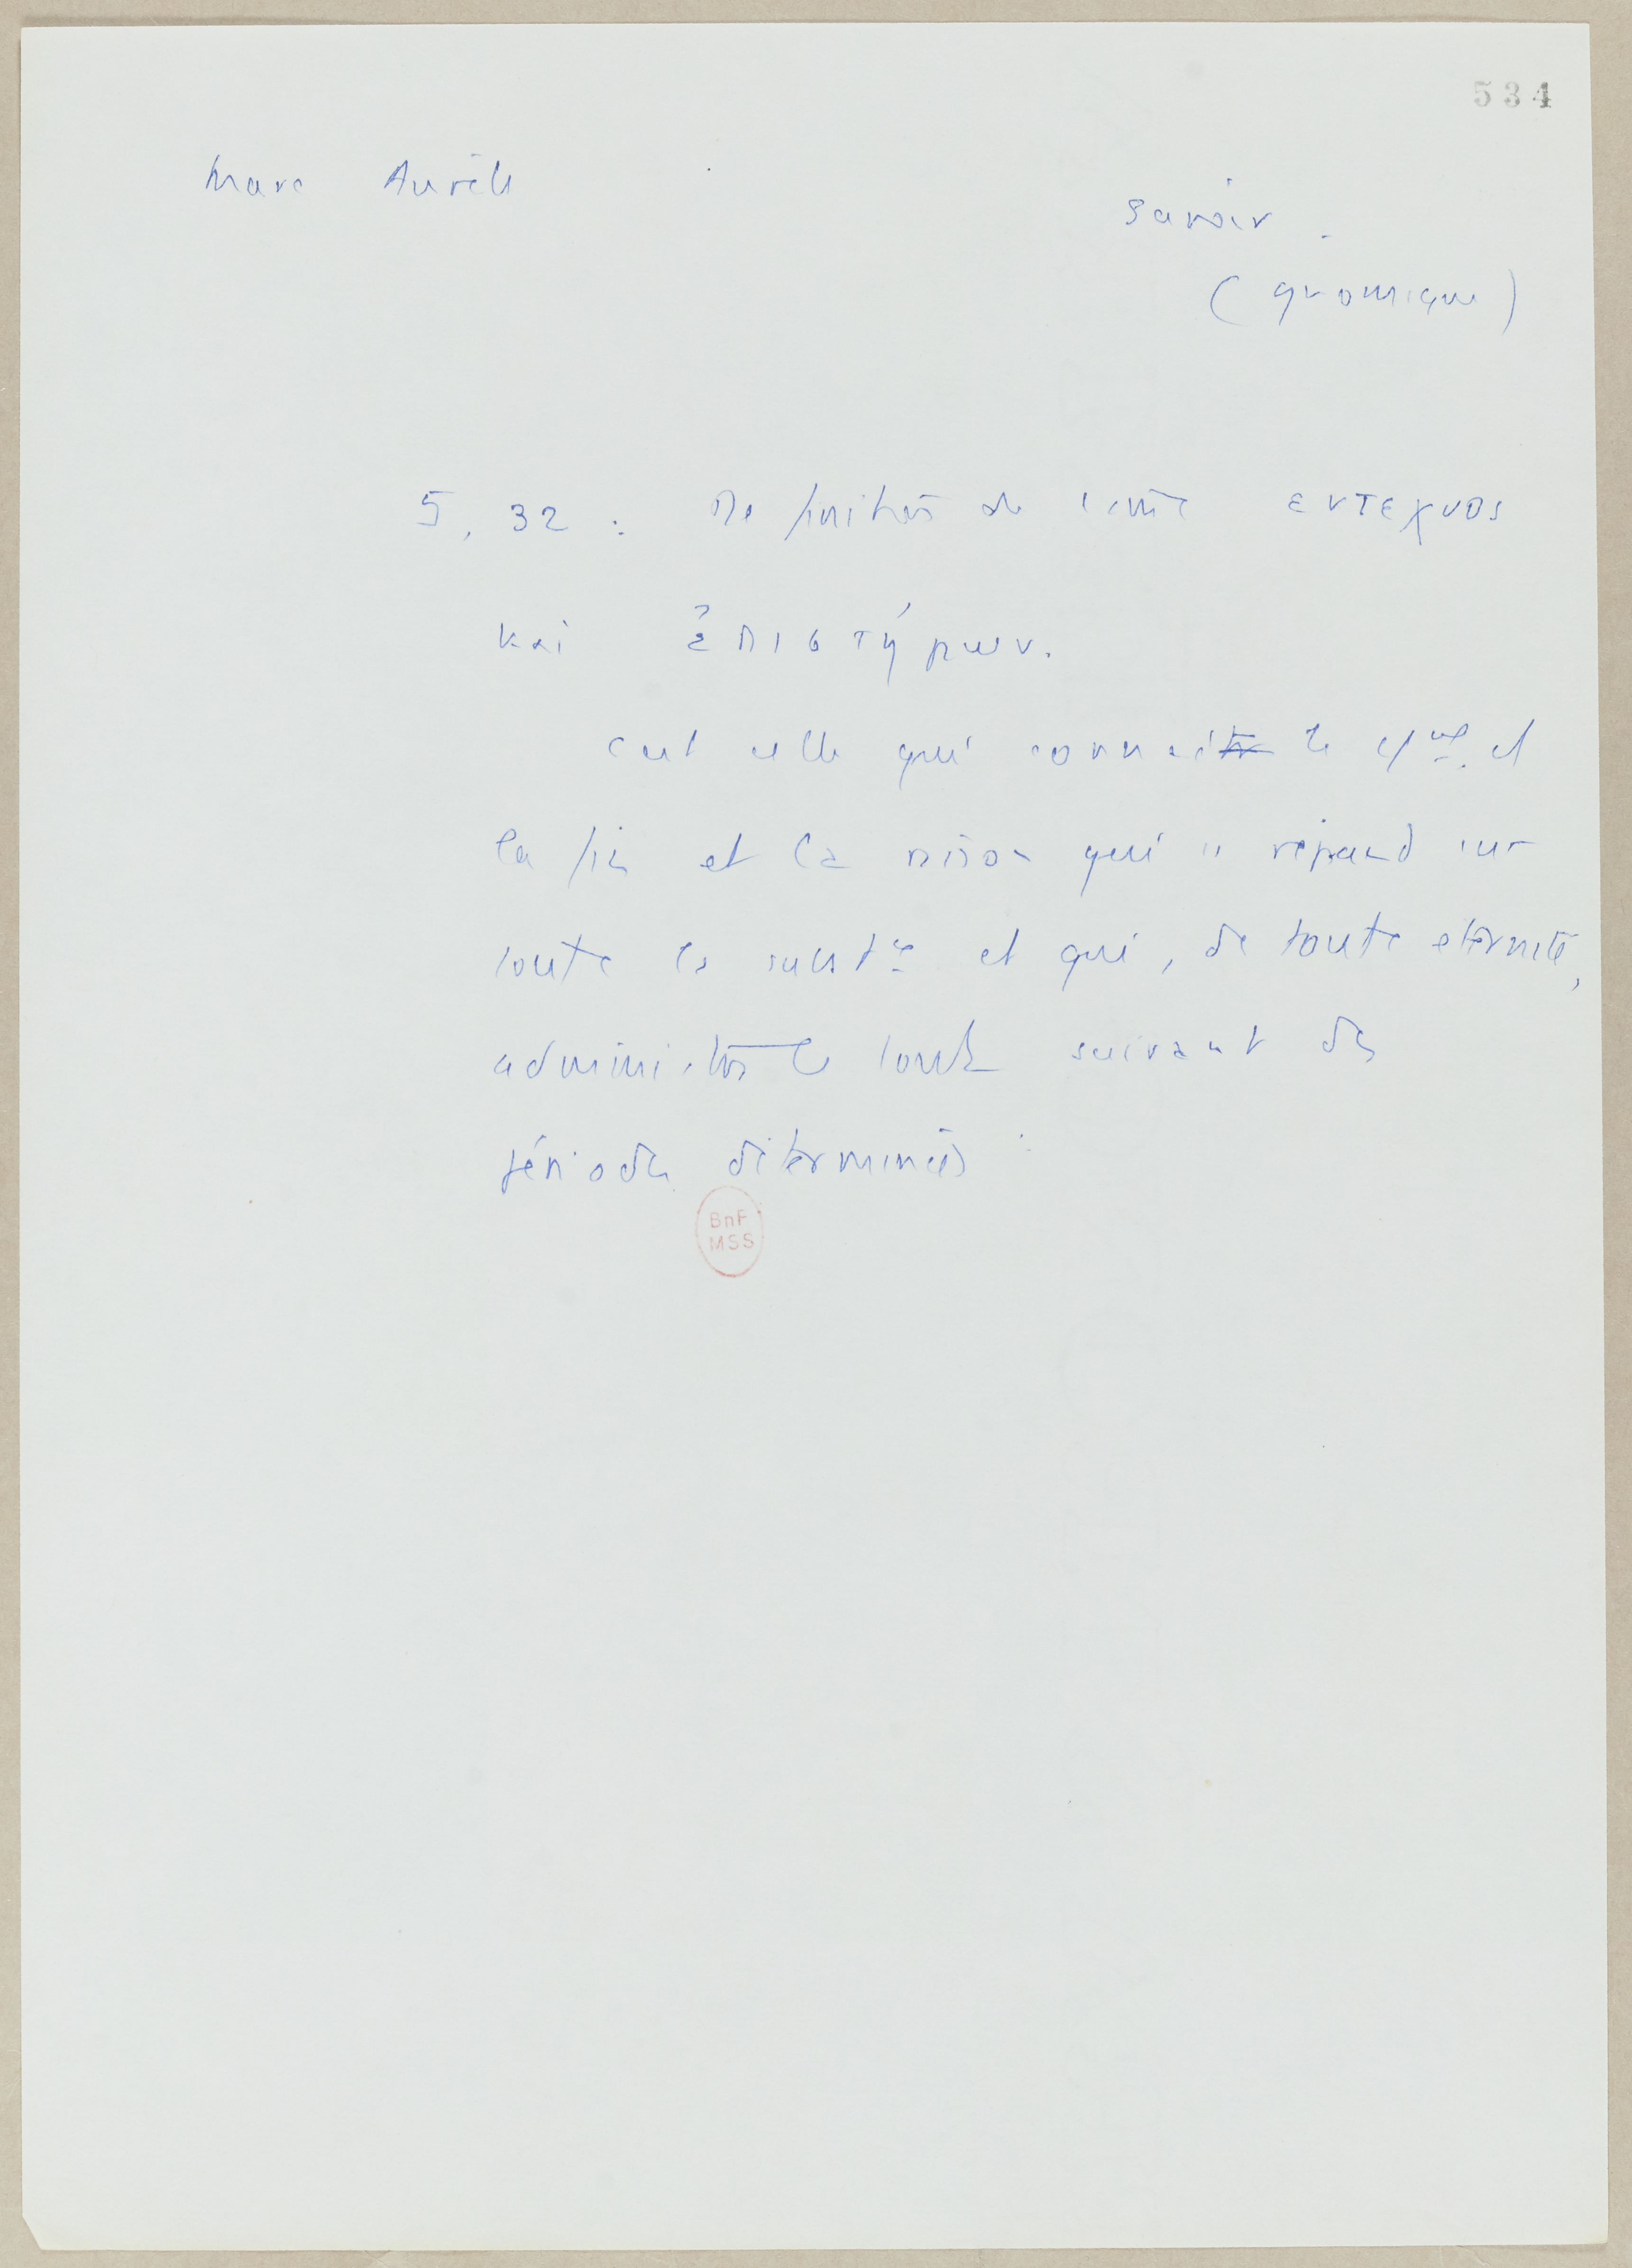 534
Marc Aurèle
savoir.
(gnomique)
5, 32 : Definition de l'âme εντεχνος
και ἐπιστήμων.
c'est celle qui connait le et
la fin et la raison qui se répand sur
toute la subst^ce et qui, de toute eternité,
administre le tout suivant des
périodes déterminées
BnF
MSS